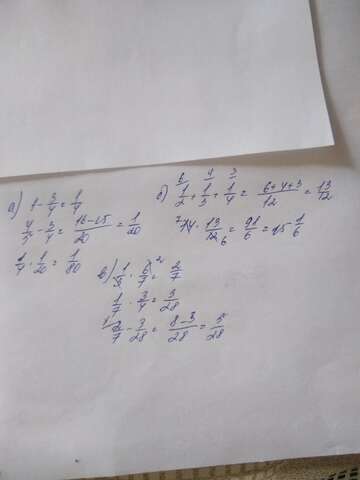 а) 1 - 3/4 = 1/4
4/5 - 3/4 = (16-15)/20 = 1/20
1/4 · 1/20 = 1/80
б) 6 4 3
1/2 + 1/3 + 1/4 = (6+4+3)/12 = 13/12
7 14 · 13/12 6 = 91/6 = 15 1/6
в) 1/3 · 6/7 2 = 2/7
1/7 · 3/4 = 3/28
2/7 - 3/28 = (8-3)/28 = 5/28